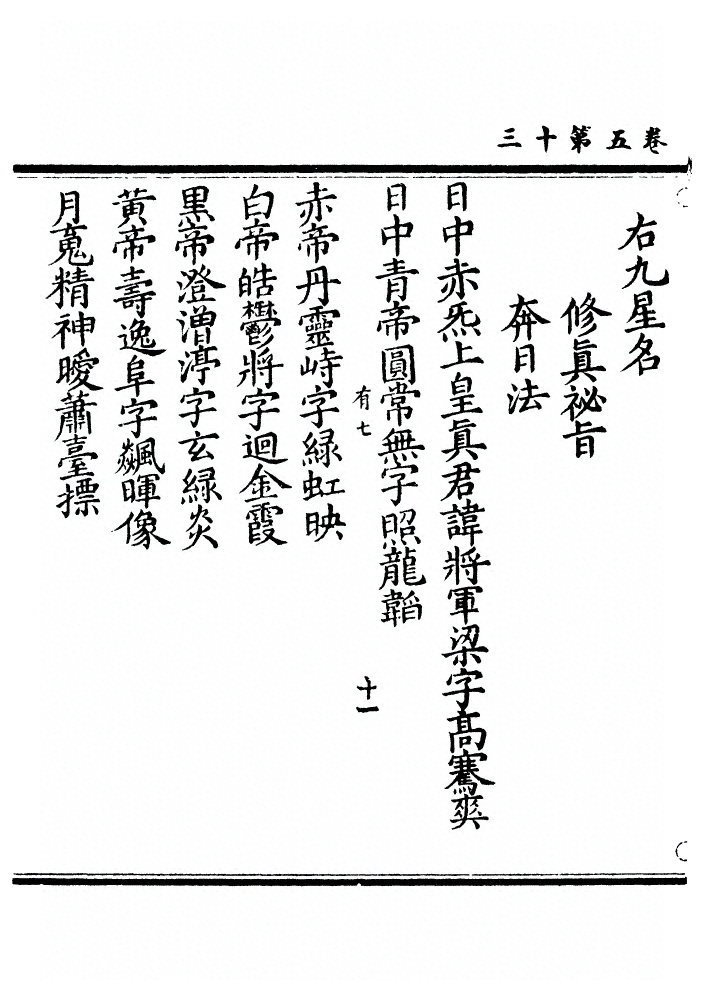 卷五第十三
右九星名
修眞祕旨
奔日法
日中赤炁上皇眞君諱將軍梁字髙騫爽
日中青帝圓常無字照龍韜
有七
十一
赤帝丹靈峙字綠虹映
白帝皓鬱將字迴金霞
黑帝澄漕渟字玄綠炎
黃帝壽逸阜字飈暉像
月䰟精神曖蕭臺摽